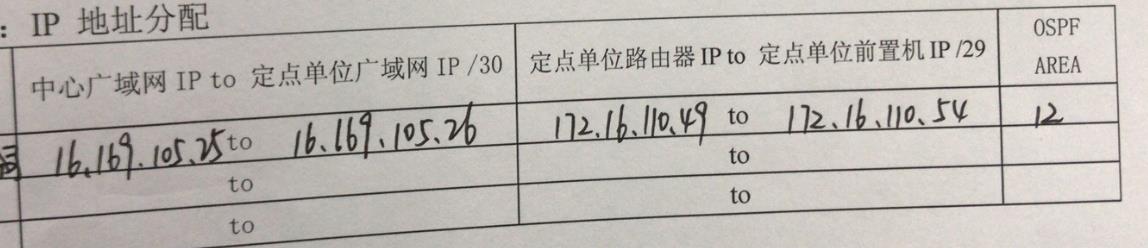 ：IP 地址分配
中心广域网 IP to 定点单位广域网 IP /30 定点单位路由器 IP to 定点单位前置机 IP /29 OSPF AREA
16.169.105.25 to 16.169.105.26 172.16.110.49 to 172.16.110.54 12
to to
to to